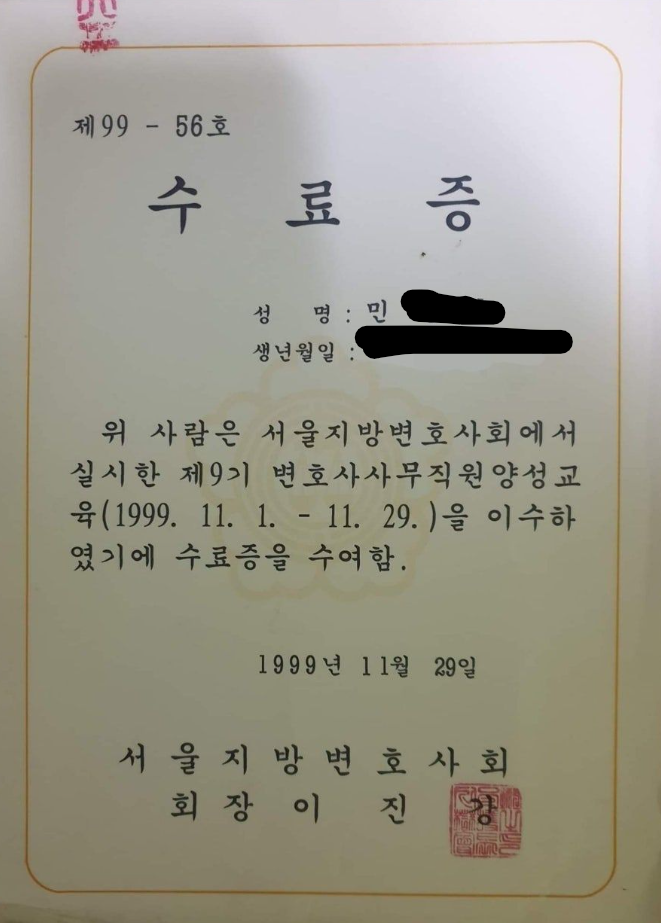 제99 - 56호
수 료 증
성 명 : 민
생년월일 :
위 사람은 서울지방변호사회에서
실시한 제9기 변호사사무직원양성교
육(1999. 11. 1. - 11. 29.)을 이수하
였기에 수료증을 수여함.
1999년 11월 29일
서 울 지 방 변 호 사 회
회 장 이 진 강